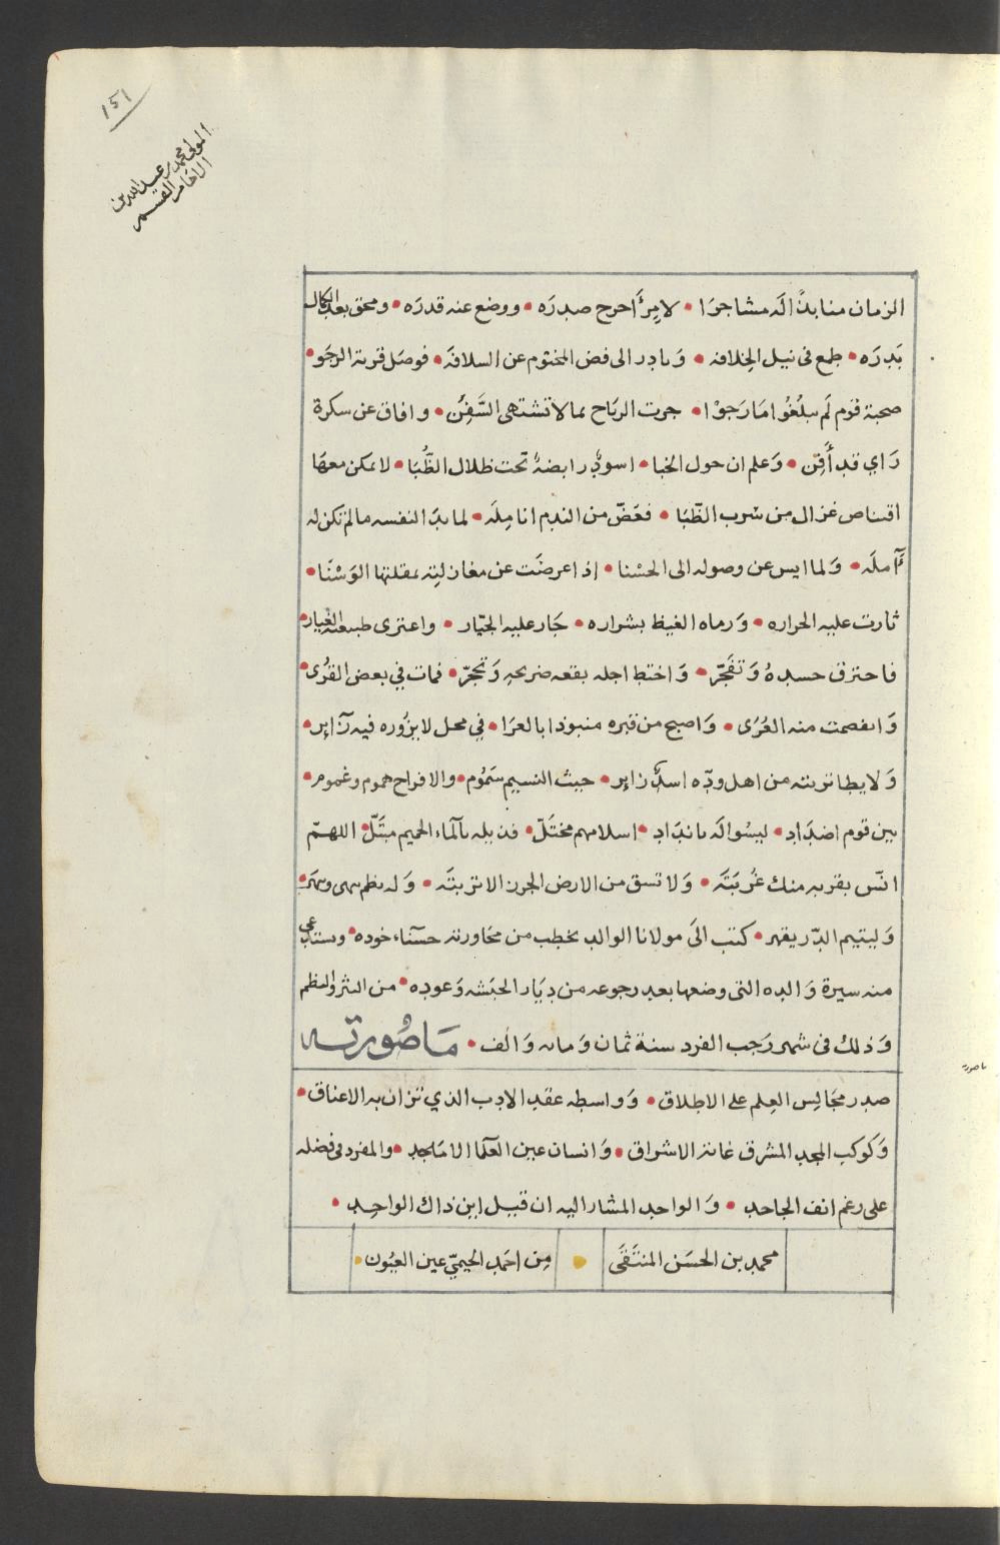 ١٥١
المولى محمد بن عبدالله بن
الامام القسم
الزمان منابذًا له مشاجرَا • لامرٍ أحرج صدرَه • ووضع عنه قدرَه • ومحق بعد الكمال
بَدرَه • طمع فى نيل الخِلافه • وَبادر الى فض المختوم عن السلافَه • فوصَل قربة الرجَو •
صحبة قوم لَم يبلُغُوا مَا رَجوْا • جرت الريَاح بما لا تشتهى السَّفِنُ • وافاق عن سكرة
رَاي قد أَفِن • وَعلم ان حول الخبا • اسودٌ رابضةٌ تحت ظلال الظُّبَا • لا يمكن معهَا
اقتناص غزال من سرب الظّبَا • فعَضّ من الندم اناملَه • لما بدَا لنفسه ما لم تكن له
آملَه • وَلما ايس عن وصوله الى الحسْنا • إذ اعرضَت عن مغازلته بمقلتها الوَسْنَا •
ثارت عليه الحراره • وَرماه الغيظ بشراره • جَار عليه الجيّار • واعترى طبيعته الغيار •
فاحترق جسدهُ وَتفجّر • وَاختط اجله بقعه ضريحهِ وَتحجّر • فمات في بعض القُرى •
وَانفصمت منه العُرَى • وَاصبح من قبره منبوذا بالعرَا • في محل لا يزُوره فيه زَاير •
وَلا يطا تربته من اهل ودّه اسدٌ زاير • حيث النسيم سَمُوم • والافراح هموم وغموم •
بين قوم اضدَاد • ليسُوا له بانداد • اسلامهم مختَلّ • فذ بله بالماء الحميم مبتَلّ • اللهمّ
انّس بقربه منك غُربَتَه • وَلا تسق من الارض الجرز الا تربتَه • وَله نظم
وَليتيم الدّر يقهر • كتب الَى مولانا الوالد يخطب من محَاورته حسنَاء خوده • ويستدعي
منه سيرة وَالده التى وضعها بعد رجوعه من ديَار الحبَشه وَعوده • من النثر والنظم
وَذلك فى شهر رَجب الفرد سنة ثمان وَمايه وَالف • مَا صُورته
صدر مجَالِس العِلم على الاطلاق • وَواسطه عقد الادب الذي تزان به الاعناق •
وَكوكب المجد المشرق غاية الاشراق • وَانسان عين العلمَا الامَاجد • والمفرد فى فضله
على رغم انف الجاحد • وَالواحد المشار اليه ان قيل اين ذاك الواحِد •
محمد بن الحسَن المنتَقَى • مِن احمَد الحيميّ عين العيُون •
ما صورته